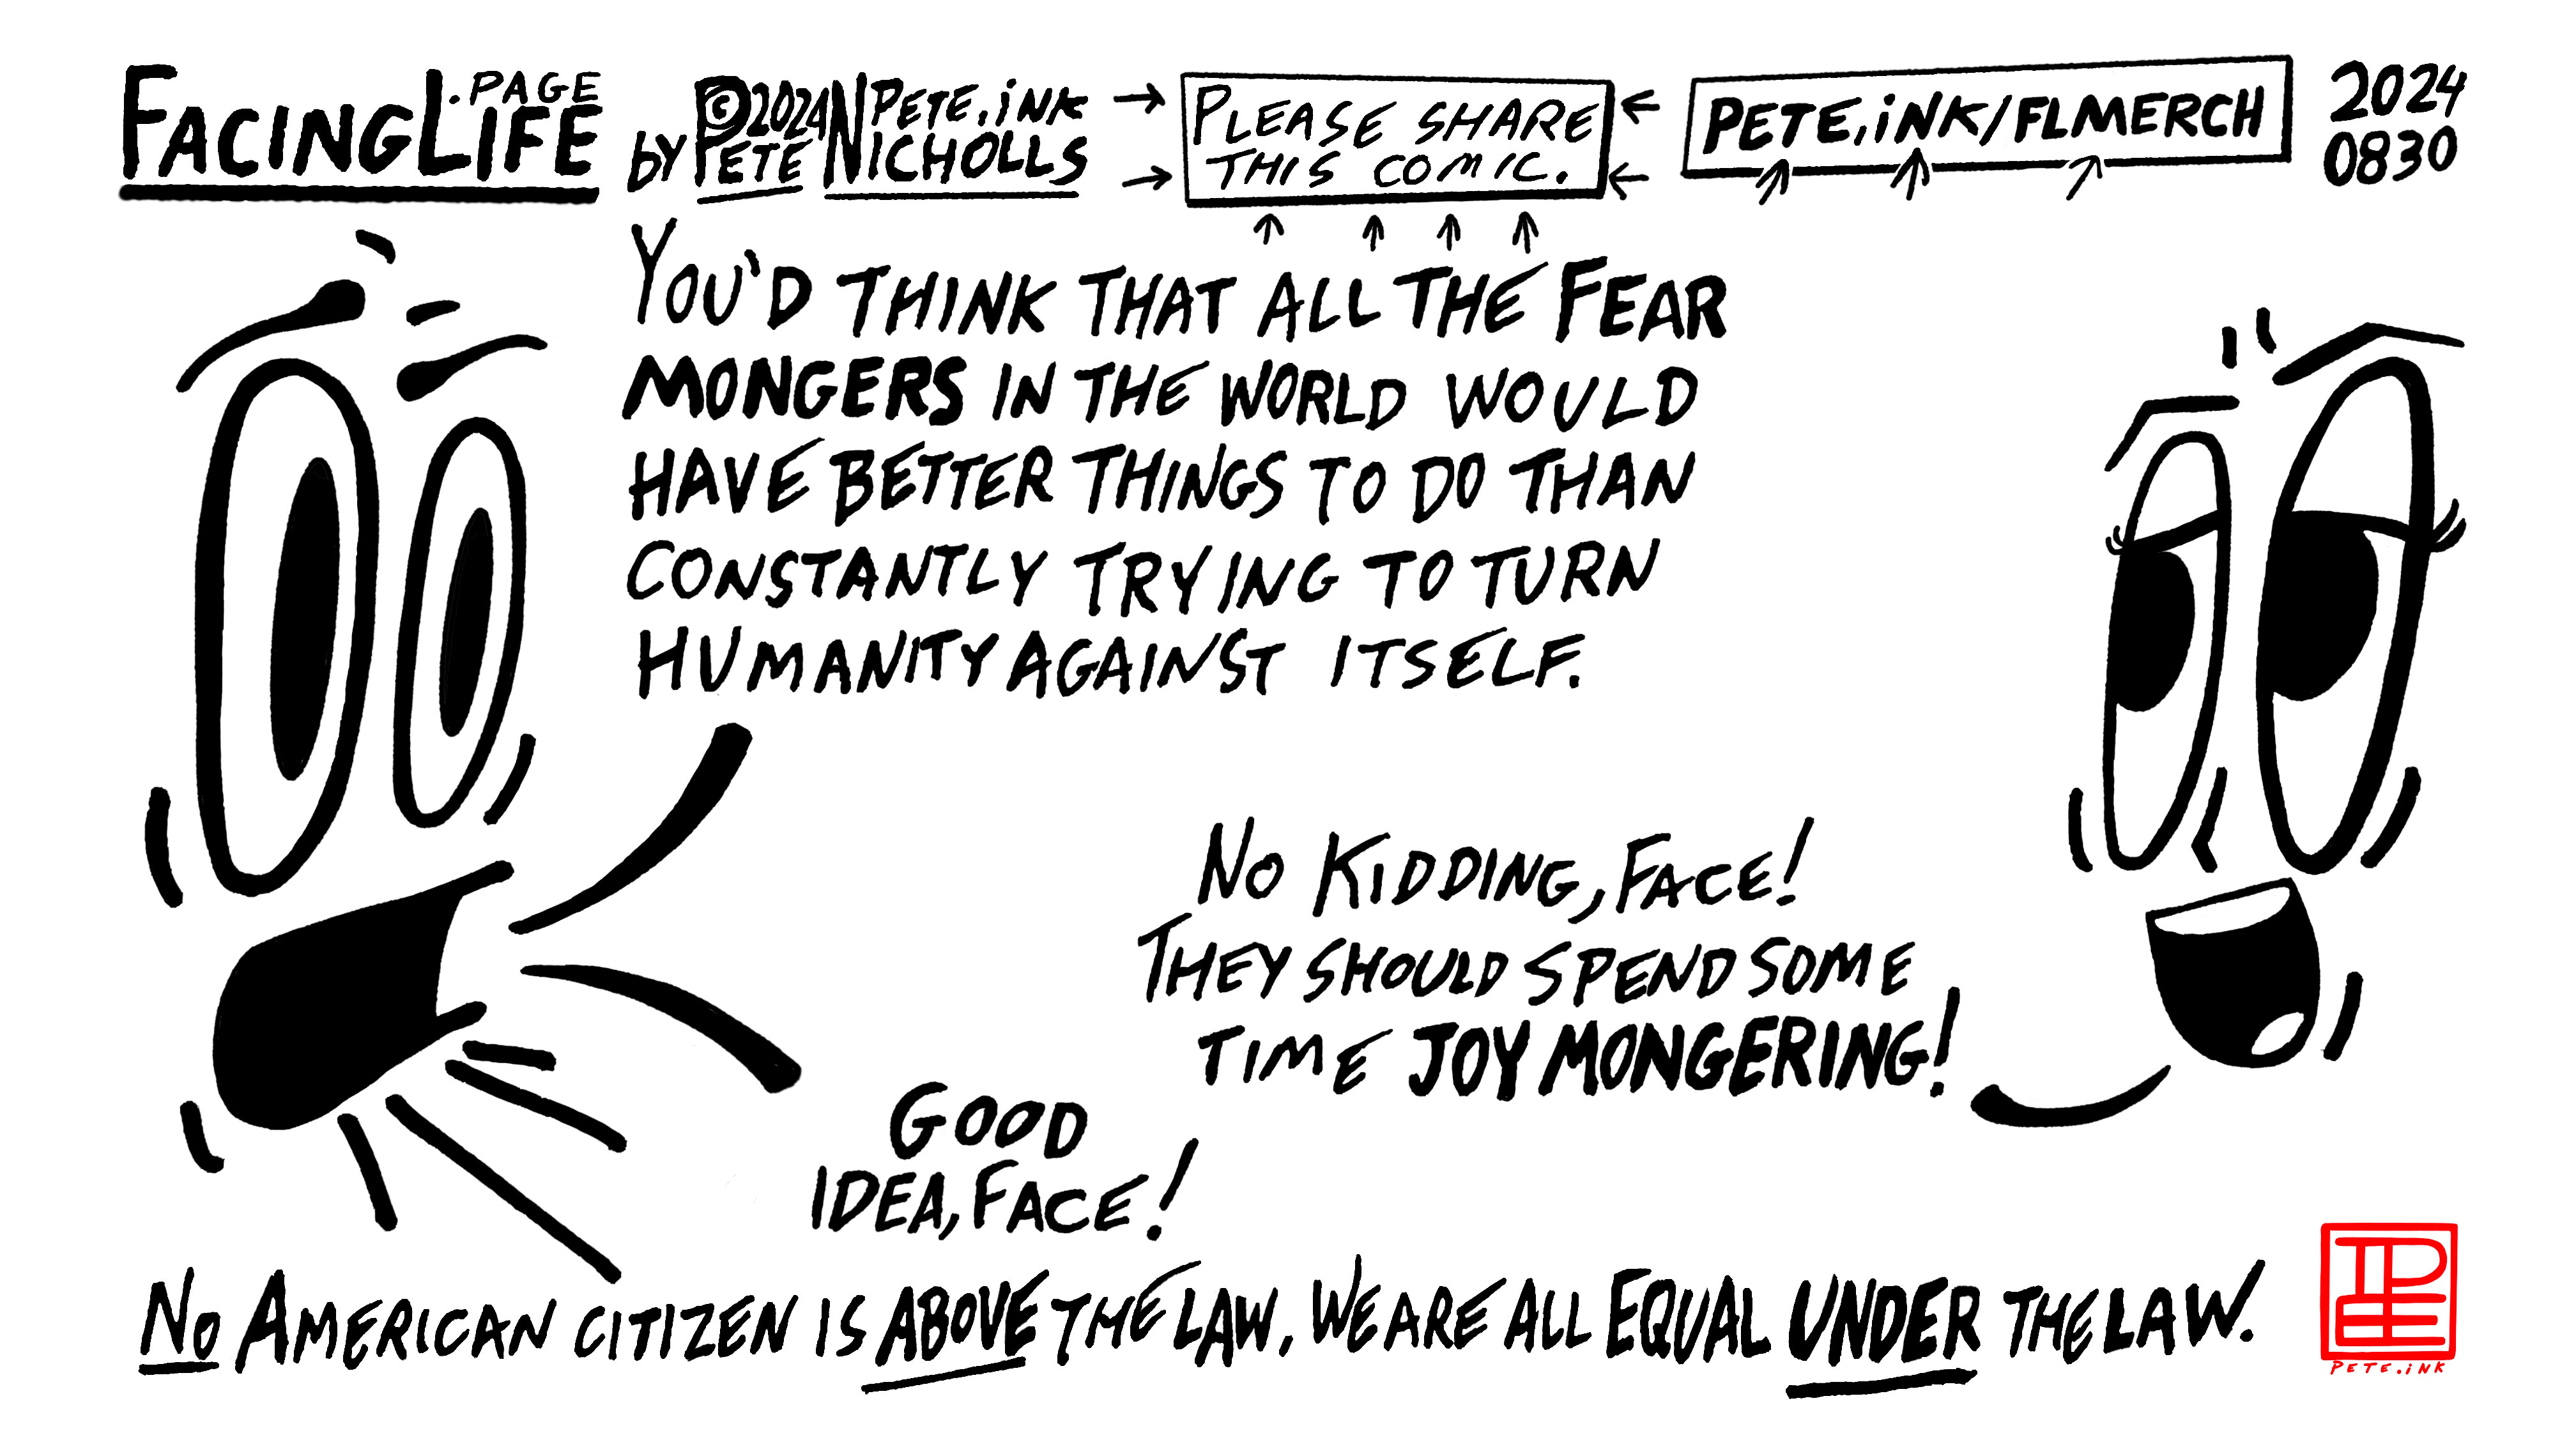 FACINGLIFE.PAGE
by PETE NICHOLLS ©2024 PETE.iNK
PLEASE SHARE
THIS COMIC.
PETE.iNK/FLMERCH
2024
0830
YOU'D THINK THAT ALL THE FEAR
MONGERS IN THE WORLD WOULD
HAVE BETTER THINGS TO DO THAN
CONSTANTLY TRYING TO TURN
HUMANITY AGAINST ITSELF.
NO KIDDING, FACE!
THEY SHOULD SPEND SOME
TIME JOY MONGERING!
GOOD
IDEA, FACE!
NO AMERICAN CITIZEN IS ABOVE THE LAW. WE ARE ALL EQUAL UNDER THE LAW.
PETE.iNK